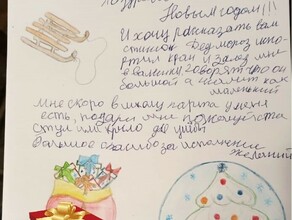 Новым годом!!!
И хочу рассказать вам
стишок Дед мороз
кран и залез мне
в валенки говорят что он
большой а шалит как
маленький
Мне скоро в школу парта у меня
есть, подари мне пожалуйста
стул или кресло до ушей
большое спасибо за исполнение
желаний